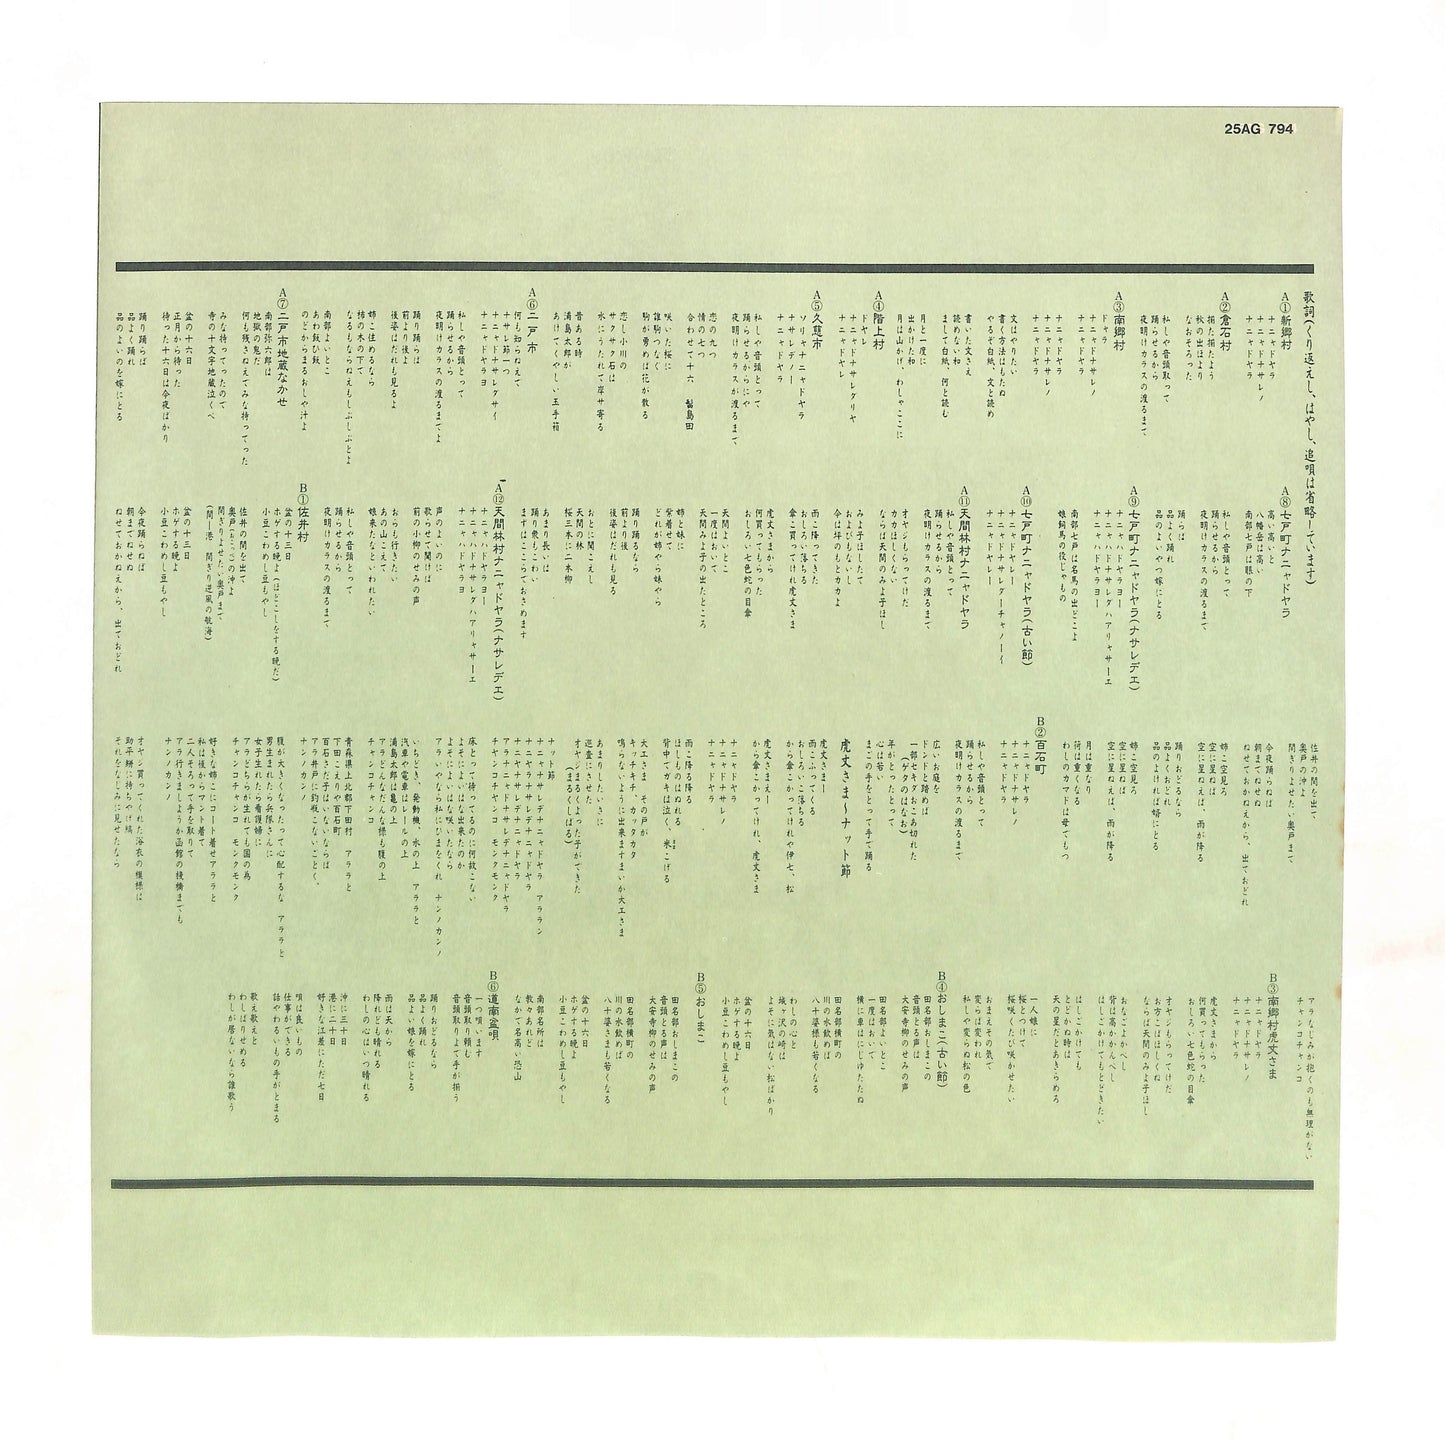 25AG 794
歌詞(くり返えし、はやし、追唄は省略しています)
A①新郷村
ナニャドヤラ
ナニャドナサレノ
ナニャドヤラ
A②倉石村
揃た揃たよう
秋の出ほより
なおそろった
私しや音頭取って
踊らせるから
夜明けカラスの渡るまで
A③南郷村
ドヤラ
ナニャドナサレノ
ナニャドヤラ
ナニャドヤラ
ナニャドナサレノ
ナニャドヤラ
文はやりたい
書く方法はもたぬ
やるぞ白紙、文と読め
書いた文さえ
読めない和
まして白紙、何と読む
月と一度に
出かけた和
月は山かげ、わしゃここに
A④階上村
ドヤレ
ナニャドナサレダリヤ
ナニャドヤレ
A⑤久慈市
ソリャナニャドヤラ
ナサレデノー
ナニャドヤラ
私しや音頭とって
踊らせるからにや
夜明けカラスが渡るまで、
恋の九つ
情の七つ
合わせて十六 髷島田
咲いた桜に
誰駒つなぐ
駒が勇めは花が散る
恋し小川の
サクサク石は
水にうたれて岸サ寄る
昔ある時
浦島太郎が
あけてくやしい玉手箱
A⑥二戸市
何も知らねえて
ナサレ節一つ
ナニャドナサレダサイ
ナニャドヤラヨ
私しや音頭とって
踊らせるから
夜明けカラスの渡るまでよ
踊り踊らば
前より後よ
後姿はだれも見るよ
姉こ住めるなら
柿の木の下で
なるもならねえもしぶしぶとよ
南部よいとこ
あわ飯ひえ飯
のどからまるおしや汁よ
A⑦二戸市地蔵なかせ
南部弥六郎は
地獄の鬼だ
何も残さねえてみな持ってった
みな持ってったので
寺の十文字地蔵泣くべ
盆の十六日
正月から待った
待った十六日は今夜ばかり
踊り踊らば
品よく踊れ
品のよいのを嫁にとる
A⑧七戸町ナニャドヤラ
高い高いと
八幡岳は高い
南部七戸は眼の下
私しや音頭とって
踊らせるから
夜明けカラスの渡るまで
踊らば
品よく踊れ
品のよいやつ嫁にとる
A⑨七戸町ナニャドヤラ(ナサレデエ)
ナニャハドヤラヨー
ナニャハドナサレダハアリャサーエ
ナニャハドヤラヨー
南部七戸は名馬の出どこよ
娘飼馬の役じゃもの
A⑩七戸町ナニャドヤラ(古い節)
ナニャドヤレー
ナニャドナサレダーチャノーイ
ナニャドヤレー
A⑪天間林村ナニャドヤラ
私しや音頭とって
踊らせるから
夜明けカラスの渡るまで
オヤジもらってけだ
カカほしくない
ならば天間のみよ子ほし
みよ子ほしたて
およびもないし
今は坪のもとカカよ
雨こ降ってきた
おしろい落ちる
傘こ買ってけれ虎丈さま
虎丈さまから
何買てもらった
おしろい七色蛇の目傘
天間よいとこ
一度はおいで
天間みよ子の出たところ
姉と妹に
紫着せて
どれが姉やら妹やら
踊り踊るなら
前より後
後姿はだれも見る
おとに聞こえし
天間の林
桜三本に二本柳
あまり長いは
踊り衆もこわい
まずはここらでおさめます
A⑫天間林村ナニャドヤラ(ナサレデエ)
ナニャハドヤラヨー
ナニャハドナサレダハアリャサーエ
ナニャハドヤラヨ
声のよいのに
歌らせて聞けば
前の小柳のせみの声
おらも行きたい
あの山こえて
娘来たなといわれたい
私しや音頭とって
踊らせるから
夜明けカラスの渡るまで
B①佐井村
盆の十三日
ホゲする晩よ(ほどこしをする晩だ)
小豆こわめし豆もやし
佐井の間を出て
奥戸(おこっぺ)の沖よ
間ぎりよせたい奥戸まで
(間ー港 間ぎり逆風の航海)
盆の十三日
ホゲする晩よ
小豆こわめし豆もやし
今夜踊らねば
朝までねせねせ
ねせておかねえから、出ておどれ
佐井の間を出て、
奥戸の沖よ
間ぎりよせたい奥戸まで
今夜踊らねば
朝までねせぬ
ねせておかねえから、出ておどれ
姉こ空見ろ
空に星ねば
空に星ねえば、雨が降る
踊りおどるなら
品よくおどれ
品のよければ姉にとる
姉こ空見ろ
空に星ねば
空に星ねえば、雨が降る
月は重なり
荷は重くなる
わしのカマドは母でもつ
B②百石町
ナニャドヤラ
ナニャドナサレノ
ナニャドヤラ
私しや音頭とって
踊らせるから
夜明けカラスの渡るまで
広いお庭を
ドンドと踏めば
一部セキタおこあ切れた
(ゲタのはなお)
年がよったとって
心は若い
まごの手をとって手で踊る
虎丈さま〜ナット節
虎丈さまー
雨こふってくる
おしろいこ落ちる
から傘こかってけれや伊七、松
虎丈さまえー
から傘こかってけれ、虎丈さま
ナニャドヤラ
ナニャドナサレノ
ナニャドヤラ
雨こ降る降る
ほしものはぬれる
背中でガキは泣く、米こげる
大工さまこさえた、その戸が
キッチキチ、カッタカタ
鳴らないように出来ますまいか大工さま
あまりしたいさに
巡査にさせたれば
オヤジまるくよった子ができた
(まるくしばる)
ナット節
ナニャナサレデナニャドヤラ アララン
ナニヤラナサレデナニャドヤラ
ナニャドヤラナニャドヤラ
アララドナサレデナニャドヤラ
チャンコチャンコ モンクモンク
床とって待ってるのに何故こない
よそによいはな出来たのか
よそによいはな咲いたなら
アラいやなら私にひまをくれ ナンノカンノ
いちどき、発動機、水の上 アララと
汽車や電車はレールの上
浦島太郎は亀の上
アラどんなだんな様も腹の上
チャンコチャンコ
青森県上北郡下田村 アララと
下田こえりや百石町
百石さだ子はいないならば
アラ井戸に釣瓶こないごとく、
腹が大きくなったって心配するな アララと
男生まれたら兵隊さんに
女子生れたら看護婦に
アラどちらが生れても国の為
チャンコチャンコ モンクモンク
好きな姉こにコート着せアララと
私は後からマント着て
二人そろって手を取りて
アラ行きましようか函館の棧橋までも
ナンノカンノ
オヤジ買ってくれた浴衣の模様は
助平餅に持ちやげ縞
それをなじみに見せたなら
アラなじみが抱くのも無理がない
チャンコチャンコ
B③南郷村虎丈さま
ナニャドヤラ
ナニャドナサレノ
ナニャドヤラ
虎丈さまから
何買ってもらった
おしろい七色蛇の目傘
オヤジもらってけだ
お方こはほしくね
ならば天間のみよ子ほし
おなごよかべし
背は高かんべし
はしごかけてもとどきたい
はしごかけても
とどかぬ時は
天の星だとあきらめろ
一人娘に
桜つけて
桜咲くたび咲かせたい
おまえその気で
変らば変われ
私しや変らぬ松の色
B④おしまこ(古い節)
田名部おしまこの
音頭とる声は
大安寺柳のせみの声
田名部よいとこ
一度はおいで
横に車はにじゆたたぬ
田名部横町の
川の水飲めば
八十婆様も若くなる
わしの心と
城ヶ沢の崎は
よそに気はない松ばかり
盆の十六日
ホゲする晩よ
小豆こわめし豆もやし
B⑤おしまこ
田名部おしまこの
音頭とる声は
大安寺柳のせみの声
田名部横町の
川の水飲めば
八十婆さまも若くなる
盆の十六日
ホゲする晩よ
小豆こわめし豆もやし
南部名所は
数々あれど
なかで名高い恐山
B⑥道南盆唄
一つ唄います
音頭取り頼む
音頭取りよて手が揃う
踊りおどるなら
品よく踊れ
品よい娘を嫁にとる
雨は天から
降れども晴れる
わしの心はいつ晴れる
沖に三十日
港に二十日
好きな江差にただ七日
唄は良いもの
仕事ができる
話やわるいもの手がとまる
歌え歌えと
わしばりせめる
わしが居ないなら誰歌う